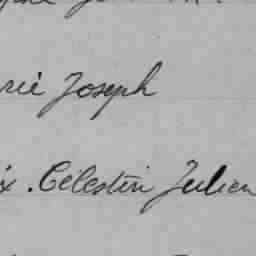 rie Joseph
x. Célestin Julien